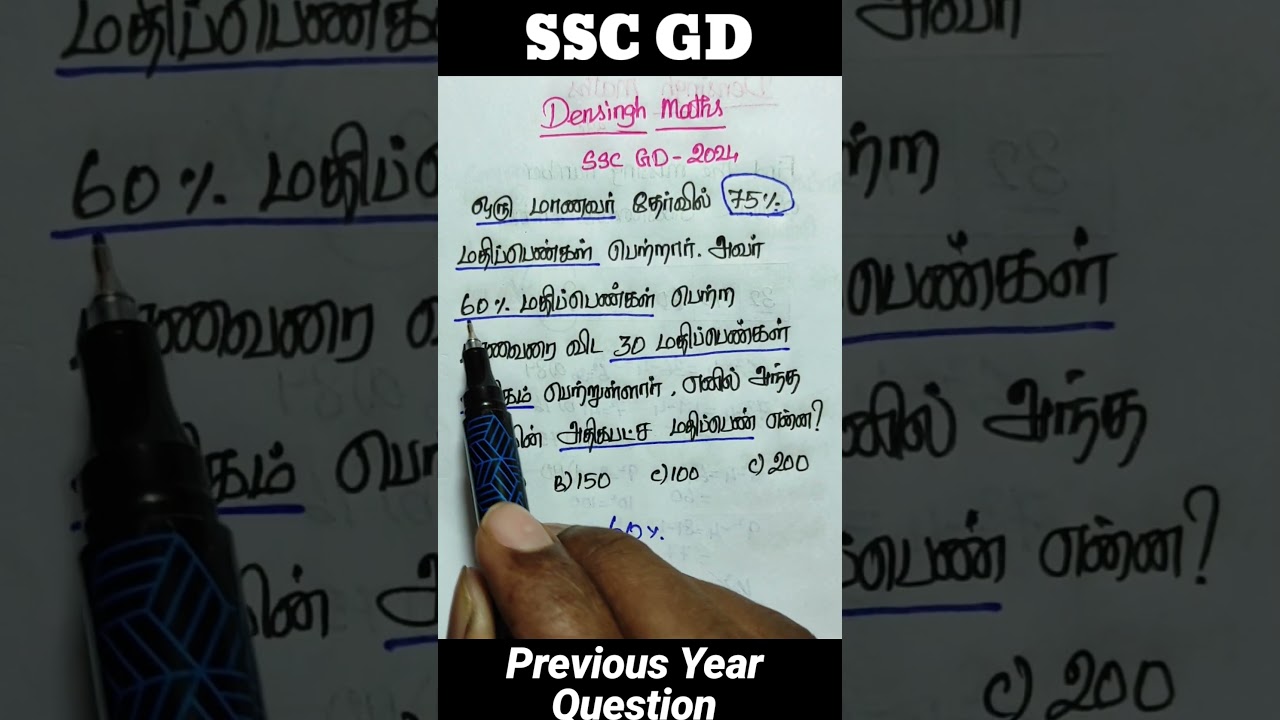 SSC GD
Densingh Maths
SSC GD - 2024
ஒரு மாணவர் தேர்வில் 75%
மதிப்பெண்கள் பெற்றார். அவர்
60% மதிப்பெண்கள் பெற்ற
விட 30 மதிப்பெண்கள்
பெற்றுள்ளார், எனில் அந்த
அதிகபட்ச மதிப்பெண் என்ன?
B) 150 C) 100 C) 200
60%
Previous Year
Question